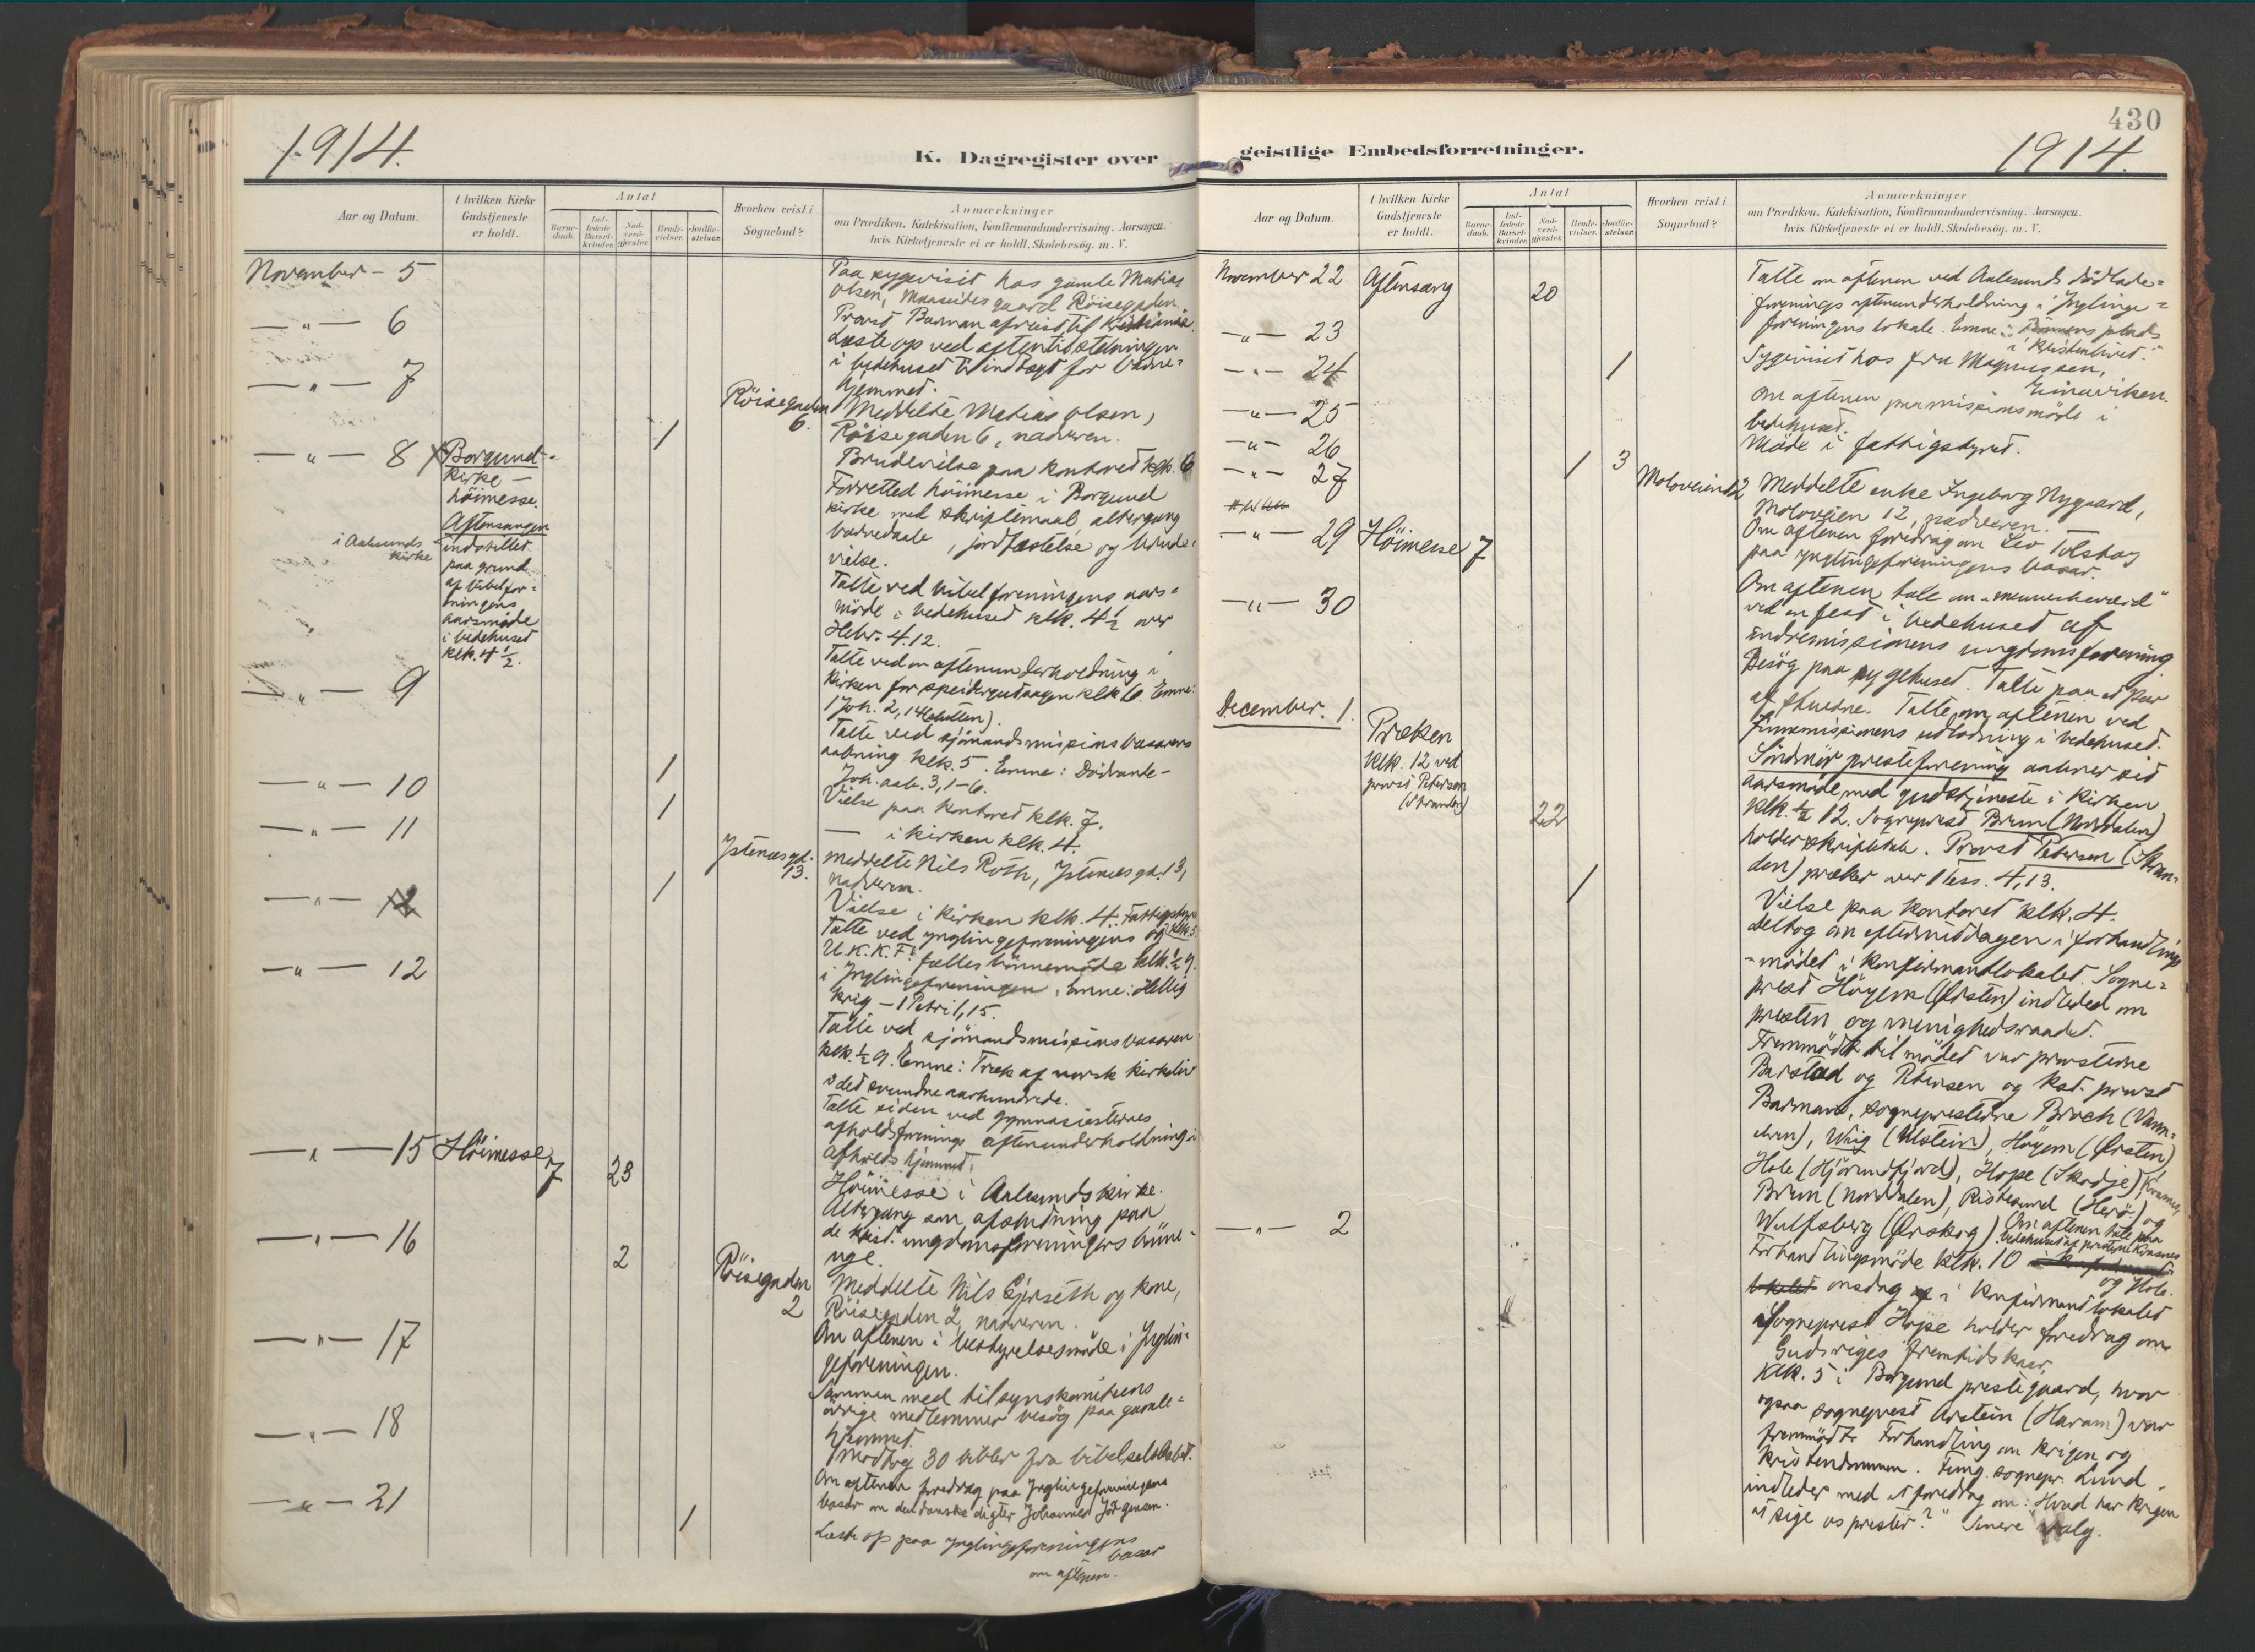 430
1914.
K. Dagregister over
Aar og Datum.
I hvilken Kirke
Gudstjeneste
er holdt.
Antal
Barne-
daab.
Ind-
ledede
Barsel-
kvinder.
Nad-
verd-
gjester.
Brude-
vielser.
Jordfæ-
stelser.
Hvorhen reist i
Sognebud?
Anmærkninger
om Prædiken, Katekisation, Konfirmandundervisning. Aarsagen,
hvis Kirketjeneste ei er holdt. Skolebesög. m. V.
November - 5
Paa sygevisit hos gamle Matias
Olsen, gaard Röisegaden.
— " — 6
Provst Barman afreist til Kristiania.
Læste op ved
i bedehuset til indtægt for barne-
hjemmet.
— " — 7
Röisegaden
6.
Meddelte Matias Olsen,
Röisegaden 6, nadveren.
1
Brudevielse paa kontoret klk. 6
— " — 8
Borgund
kirke —
höimesse.
Aftensangen
i Aalesunds
kirke
indstillet
paa grund
af bibelfor-
eningens
aarsmöde
i bedehuset
klk. 4 1/2.
Forretted höimesse i Borgund
kirke med skriftemaal, altergang
barnedaab, jordfæstelse og brude-
vielse.
Talte ved bibelforeningens aars-
möde i bedehuset klk. 4 1/2 over
Hebr. 4.12.
— " — 9
Talte ved en aftenunderholdning i
kirken for speidergutter klk 6. Emne:
1 Joh. 2, 14
Talte ved sjömandsmisjonsbasarens
aabning klk. 5. Emne:
Joh. aab. 3, 1-6.
— " — 10
1
Vielse paa kontoret klk. 7.
— " — 11
1
— i kirken klk. 4.
Ystenesgd.
13.
Meddelte Nils Roth, Ystenesgd. 13,
nadveren.
1
Vielse i kirken klk. 4. Fattigstyre
klk. 5.
Talte ved ynglingeforeningens og
U.K.K.F. fælles bönnemöde klk. 1/2 9.
— " — 12
i Ynglingeforeningen. Emne: Hellig
krig — 1 Petri 1, 15.
Talte ved sjömandsmisjonsbasaren
klk. 1/2 9. Emne: Træk af norsk kirkeliv
i det svundne aarhundrede.
Talte siden ved gymnasiasternes
afholdsforenings aftenunderholdning i
Afholdshjemmet.
— " — 15
Höimesse
7
23
Höimesse i Aalesunds kirke.
Altergang som afslutning paa
de krist. ungdomsforeningers bönne-
uge.
— " — 16
2
Röisegaden
2
Meddelte Nils Gjerseth og kone,
Röisegaden 2, nadveren.
Om aftenen i bestyrelsesmöde i Ynglin-
geforeningen.
— " — 17
Sammen med tilsynskomiteens
övrige medlemmer besög paa gamle-
hjemmet.
— " — 18
Modtog 30 bibler fra bibelselskabet.
Om aftenen foredrag paa Ynglingeforeningens
basar om den danske digter Johannes Jörgensen.
— " — 21
1
Læste op paa ynglingeforeningens
basar
om aftenen.
geistlige Embedsforretninger.
1914.
Aar og Datum.
I hvilken Kirke
Gudstjeneste
er holdt.
Antal
Barne-
daab.
Ind-
ledede
Barsel-
kvinder.
Nad-
verd-
gjester.
Brude-
vielser.
Jordfæ-
stelser.
Hvorhen reist i
Sognebud?
Anmærkninger
om Prædiken, Katekisation, Konfirmandundervisning. Aarsagen,
hvis Kirketjeneste ei er holdt. Skolebesög. m. V.
November 22
Aftensang
20
Talte om aftenen ved Aalesunds
forenings aftenunderholdning i Ynglinge-
foreningens lokale. Emne: plads
i kristenlivet."
— " — 23
— " — 24
1
Sygevisit hos fru Magnussen,
— " — 25
Om aftenen paa misjonsmöde i
bedehuset.
— " — 26
Möde i fattigstyret.
— " — 27
1
3
Moloveien 12
Meddelte enke Ingeborg Nygaard,
Moloveien 12, nadveren.
Om aftenen foredrag om Leo Tolstoy
paa ynglingeforeningens basar.
— " — 29
Höimesse
7
Om aftenen tale om "menneskeværd"
ved en fest i bedehuset af
indremisjonens ungdomsforening.
— " — 30
Besög paa sygehuset. Talte paa et par
af stuerne. Talte om aftenen ved
Finnemisjonens udlodning i bedehuset.
December. 1.
Præken
klk. 12 ved
provst Petersen
(Stranden)
22
Söndmör presteforening aabner sit
aarsmöde med gudstjeneste i kirken
klk. 1/2 12. Sogneprest Brun (Norddalen)
holder skriftetale. Provst Petersen (Stran-
den) præker over 1 Tess. 4, 13.
1
Vielse paa kontoret klk. 4.
Deltog om eftermiddagen i forhandlings
-mödet i konfirmantlokalet. Sogne-
prest Höyem (Örsten) indleded om
presten og menighedsraadet.
Fremmödt til mödet var provsterne
Barstad og Petersen og kst. provst
Barman, sognepresterne Broch (Vann-
elven), Wiig (Ulstein), Höyem (Örsten)
Hole (Hjörundfjord), Hope (Skodje),
Brun (Norddalen), Ristesund (Herö) og
Wulfsberg (Örskog). Om aftenen tale paa
bedehuset af presterne
og Hole.
— " — 2
Forhandlingsmöde klk. 10
onsdag i konfirmantlokalet
Sogneprest Hope holder foredrag om
Gudsriges fremtidskaar.
Klk. 5 i Borgund prestegaard, hvor
ogsaa sogneprest Arstein (Haram) var
fremmödt. Forhandling om krigen og
kristendommen. Fung. sognepr. Lund
indleder med et foredrag om: "Hvad har krigen
at sige os prester?" Senere valg.